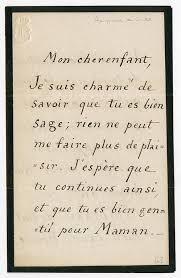 Mon cher enfant,
Je suis charmé de
savoir que tu es bien
sage; rien ne peut
me faire plus de plai-
-sir. J'espère que
tu continues ainsi
et que tu es bien gen-
-til pour Maman. —